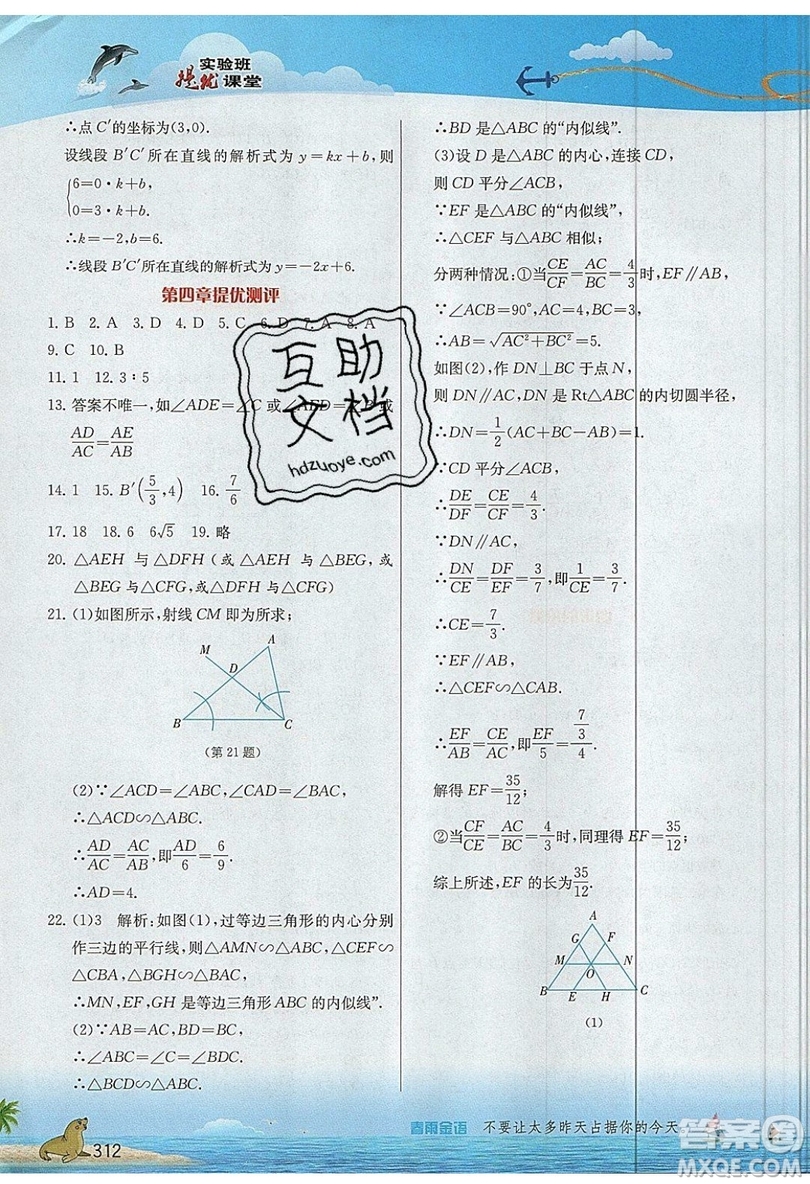 实验班
提优课堂
∴点 C′的坐标为(3,0).
设线段 B′C′所在直线的解析式为 y=kx+b,则
{6=0·k+b,
0=3·k+b.
∴k=-2,b=6.
∴线段 B′C′所在直线的解析式为 y=-2x+6.
第四章提优测评
1. B 2. A 3. D 4. D 5. C 6. D 7. A 8. A
9. C 10. B
11. 1 12. 3∶5
13. 答案不唯一,如∠ADE=∠C 或∠AED=∠B 或
AD/AC=AE/AB
14. 1 15. B′(5/3,4) 16. 7/6
17. 18 18. 6 6√5 19. 略
20. △AEH 与△DFH(或△AEH 与△BEG,或
△BEG 与△CFG,或△CFG 与△DFH)
21. (1)如图所示,射线 CM 即为所求;
A
M
D
B C
(第 21 题)
(2)∵∠ACD=∠ABC,∠CAD=∠BAC,
∴△ACD∽△ABC.
∴AD/AC=AC/AB,即AD/6=6/9.
∴AD=4.
22. (1)3 解析:如图(1),过等边三角形的内心分别
作三边的平行线,则△AMN∽△ABC,△CEF∽
△CBA,△BGH∽△BAC.
∴MN,EF,GH 是等边三角形 ABC 的内似线”.
(2)∵AB=AC,BD=BC,
∴∠ABC=∠C=∠BDC.
∴△BDC∽△ABC.
∴BD 是△ABC 的“内似线”.
(3)设 D 是△ABC 的内心,连接 CD,
则 CD 平分∠ACB,
∵EF 是△ABC 的“内似线”,
∴△CEF 与△ABC 相似;
分两种情况:①当CE/CF=AC/BC=4/3时,EF∥AB,
∵∠ACB=90°,AC=4,BC=3,
∴AB=√(AC²+BC²)=5.
如图(2),作 DN⊥BC 于点 N,
则 DN∥AC,DN 是 Rt△ABC 的内切圆半径,
∴DN=1/2(AC+BC-AB)=1.
∵CD 平分∠ACB,
∴DE/DF=CE/CF=4/3.
∵DN∥AC,
∴DN/CE=DF/EF=3/7,即1/CE=3/7.
∴CE=7/3.
∵EF∥AB,
∴△CEF∽△CAB.
∴EF/AB=CE/AC,即EF/5=(7/3)/4.
解得 EF=35/12;
②当CF/CE=AC/BC=4/3时,同理得 EF=35/12;
综上所述,EF 的长为35/12.
A
G F
M N
O
B E H C
(1)
互助
文档
hdzuoye.com
312
春雨金语 不要让太多昨天占据你的今天
答案圈
MXQE.COM